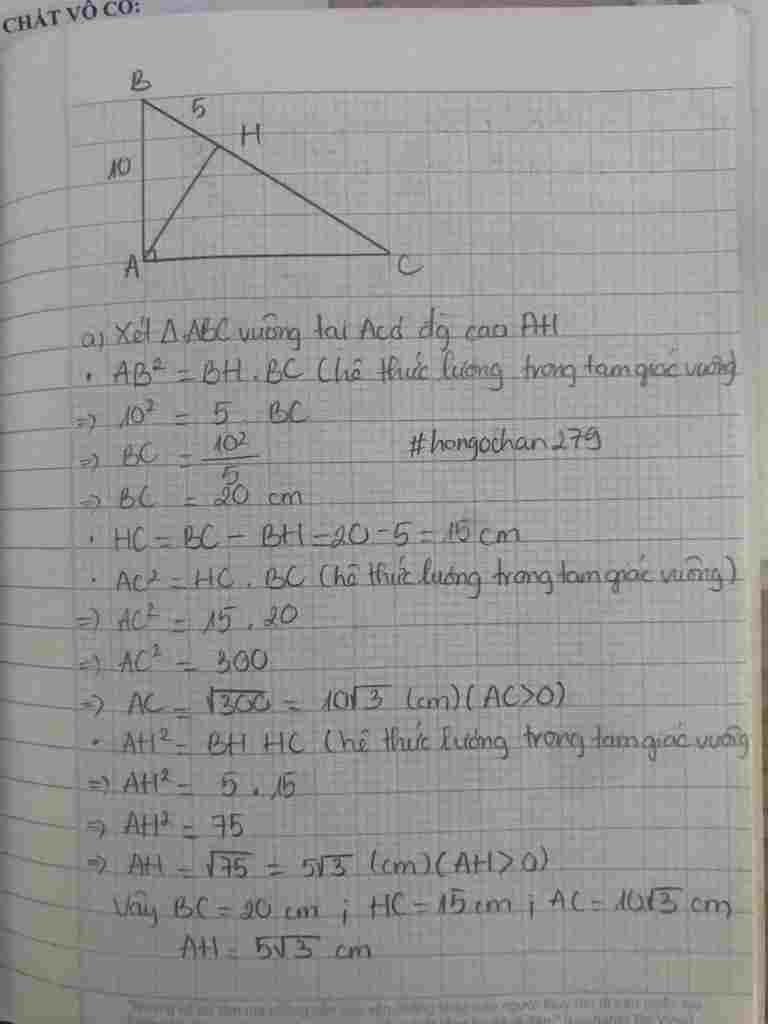 CHẤT VÔ CƠ:
B
5
H
10
A
C
a) Xét Δ ABC vuông tại A có đg cao AH
• AB² = BH . BC (hệ thức lượng trong tam giác vuông)
=> 10² = 5 BC
=> BC = 10²/5
#hongochan279
=> BC = 20 cm
• HC = BC - BH = 20 - 5 = 15 cm
• AC² = HC . BC (hệ thức lượng trong tam giác vuông)
=> AC² = 15 . 20
=> AC² = 300
=> AC = √300 = 10√3 (cm) (AC>0)
• AH² = BH HC (hệ thức lượng trong tam giác vuông
=> AH² = 5 . 15
=> AH² = 75
=> AH = √75 = 5√3 (cm) (AH>0)
Vậy BC = 20 cm ; HC = 15 cm ; AC = 10√3 cm
AH = 5√3 cm